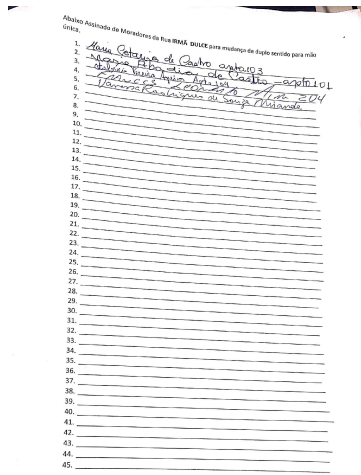 Abaixo Assinado de Moradores da Rua IRMÃ DULCE para mudança de duplo sentido para mão
única.
1. Maria Catarina de Castro apto 103
2. Maria de Castro - apto 101
3. Antônio Vieira Apto 104
4. 204
5. Vanessa Rodrigues de Souza Miranda
6.
7.
8.
9.
10.
11.
12.
13.
14.
15.
16.
17.
18.
19.
20.
21.
22.
23.
24.
25.
26.
27.
28.
29.
30.
31.
32.
33.
34.
35.
36.
37.
38.
39.
40.
41.
42.
43.
44.
45.